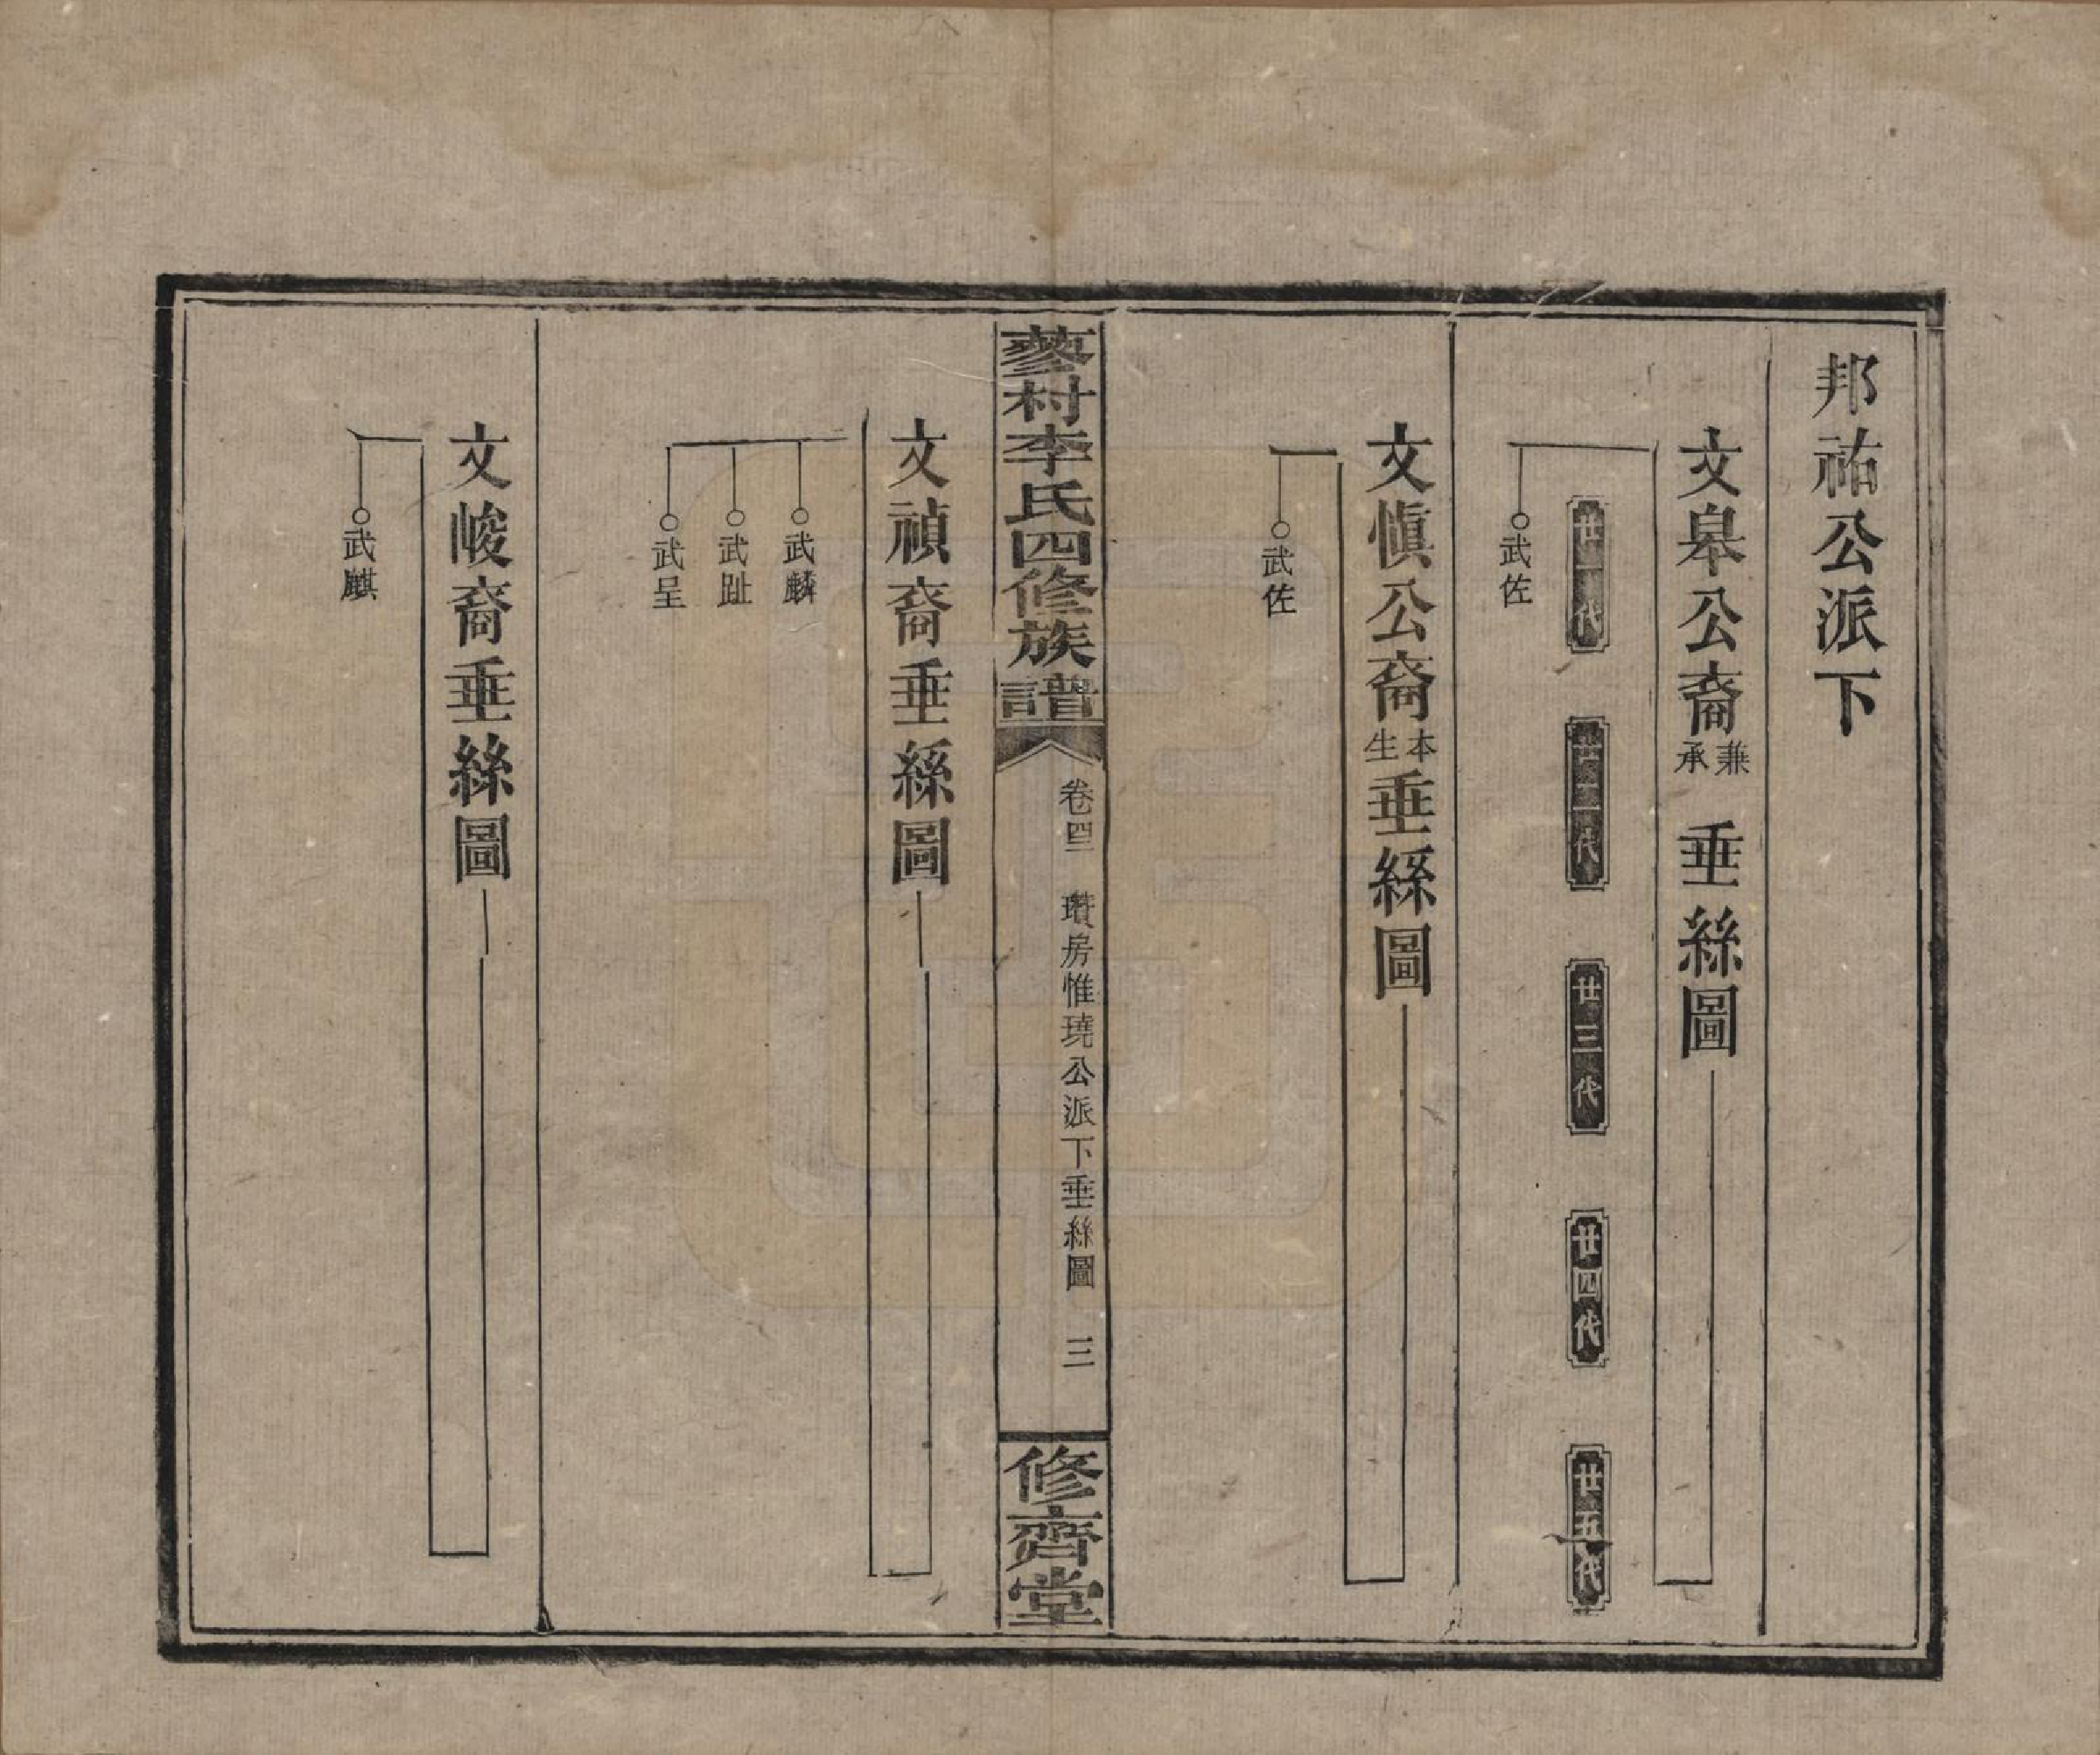 邦祐公派下
文皋公裔兼承垂絲圖
廿一代 廿二代 廿三代 廿四代 廿五代
武佐
文愼公裔本生垂絲圖
武佐
蓼村李氏四修族譜
卷四 瓚房惟璄公派下垂絲圖 三
修齊堂
文禎裔垂絲圖
武麟
武趾
武呈
文峻裔垂絲圖
武麒